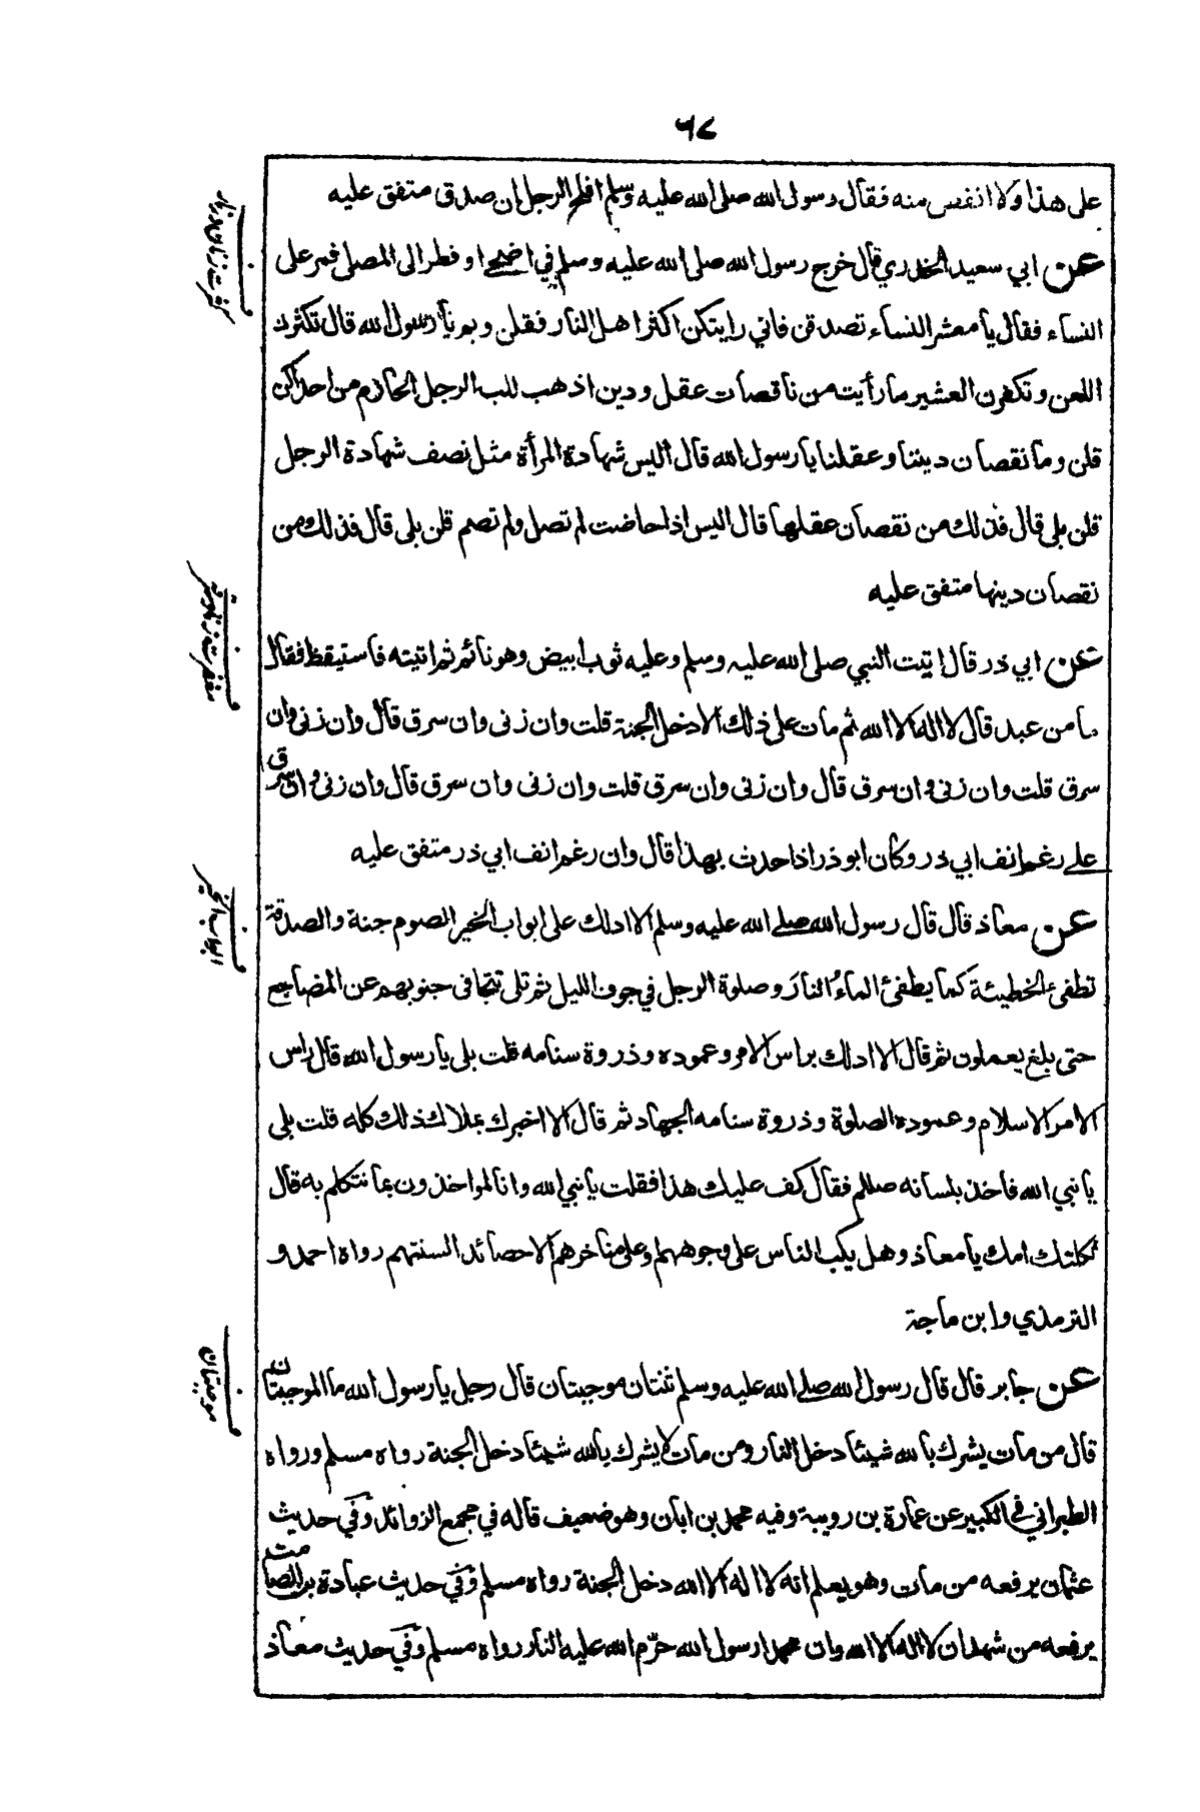 ٦٧
على هذا ولا انفس منه فقال رسول الله صلى الله عليه وسلم افلح الرجل ان صدق متفق عليه
عن ابي سعيد الخدري قال خرج رسول الله صلى الله عليه وسلم في اضحى او فطر الى المصلى فمر على
النساء فقال يا معشر النساء تصدقن فاني رايتكن اكثر اهل النار فقلن وبم يا رسول الله قال تكثرن
اللعن وتكفرن العشير ما رأيت من ناقصات عقل ودين اذهب للب الرجل الحازم من احداكن
قلن وما نقصان ديننا وعقلنا يا رسول الله قال اليس شهادة المرأة مثل نصف شهادة الرجل
قلن بلى قال فذلك من نقصان عقلها قال اليس اذا حاضت لم تصل ولم تصم قلن بلى قال فذلك من
نقصان دينها متفق عليه
عن ابي ذر قال اتيت النبي صلى الله عليه وسلم وعليه ثوب ابيض وهو نائم ثم اتيته فاستيقظ فقال
ما من عبد قال لا اله الا الله ثم مات على ذلك الا دخل الجنة قلت وان زنى وان سرق قال وان زنى وان
سرق قلت وان زنى وان سرق قال وان زنى وان سرق قلت وان زنى وان سرق قال وان زنى وان سرق
على رغم انف ابي ذر وكان ابو ذر اذا حدث بهذا قال وان رغم انف ابي ذر متفق عليه
عن معاذ قال قال رسول الله صلى الله عليه وسلم الا ادلك على ابواب الخير الصوم جنة والصدقة
تطفئ الخطيئة كما يطفئ الماءُ النارَ وصلوة الرجل في جوف الليل ثم تلى تتجافى جنوبهم عن المضاجع
حتى بلغ يعملون ثم قال الا ادلك براس الامر وعموده وذروة سنامه قلت بلى يا رسول الله قال راس
الامر الاسلام وعموده الصلوة وذروة سنامه الجهاد ثم قال الا اخبرك بملاك ذلك كله قلت بلى
يا نبي الله فاخذ بلسانه صللم فقال كف عليك هذا فقلت يا نبي الله وانا لمواخذون بما نتكلم به قال
ثكلتك امك يا معاذ وهل يكب الناس على وجوههم او على مناخرهم الا حصائد السنتهم رواه احمد و
الترمذي وابن ماجة
عن جابر قال قال رسول الله صلى الله عليه وسلم ثنتان موجبتان قال رجل يا رسول الله ما الموجبتان
قال من مات يشرك بالله شيئا دخل النار ومن مات لا يشرك بالله شيئا دخل الجنة رواه مسلم ورواه
الطبراني في الكبير عن عمارة بن رويبة وفيه محمد بن ابان وهو ضعيف قاله في مجمع الزوائد وفي حديث
عثمان يرفعه من مات وهو يعلم انه لا اله الا الله دخل الجنة رواه مسلم وفي حديث عبادة بن الصامت
يرفعه من شهد ان لا اله الا الله وان محمدا رسول الله حرّم الله عليه النار رواه مسلم وفي حديث معاذ
ف ابواب الخير
ف موجبتان